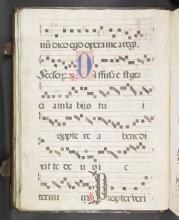 dico ego opera mea regi.
Diffusa est gra
cia in la bijs tu i
s ppte re a bene di
xit te de u s i
ternu Propter veri